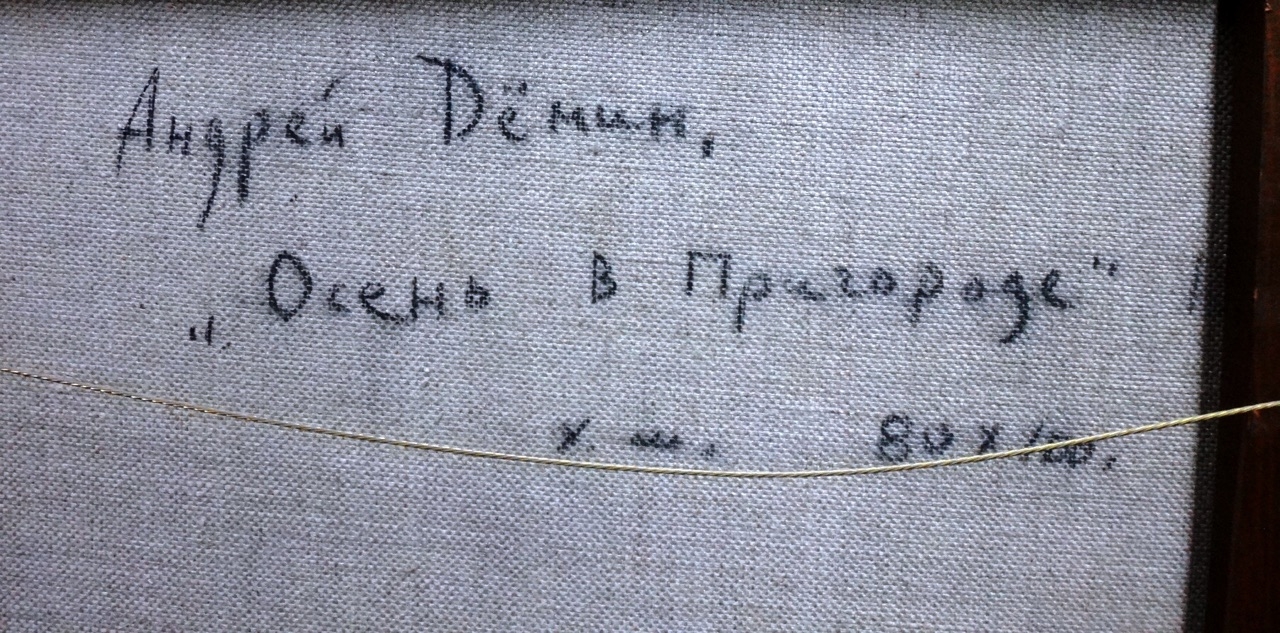 Андрей Дёмин,
„Осень в Пригороде"
х. м. 80 х 100.